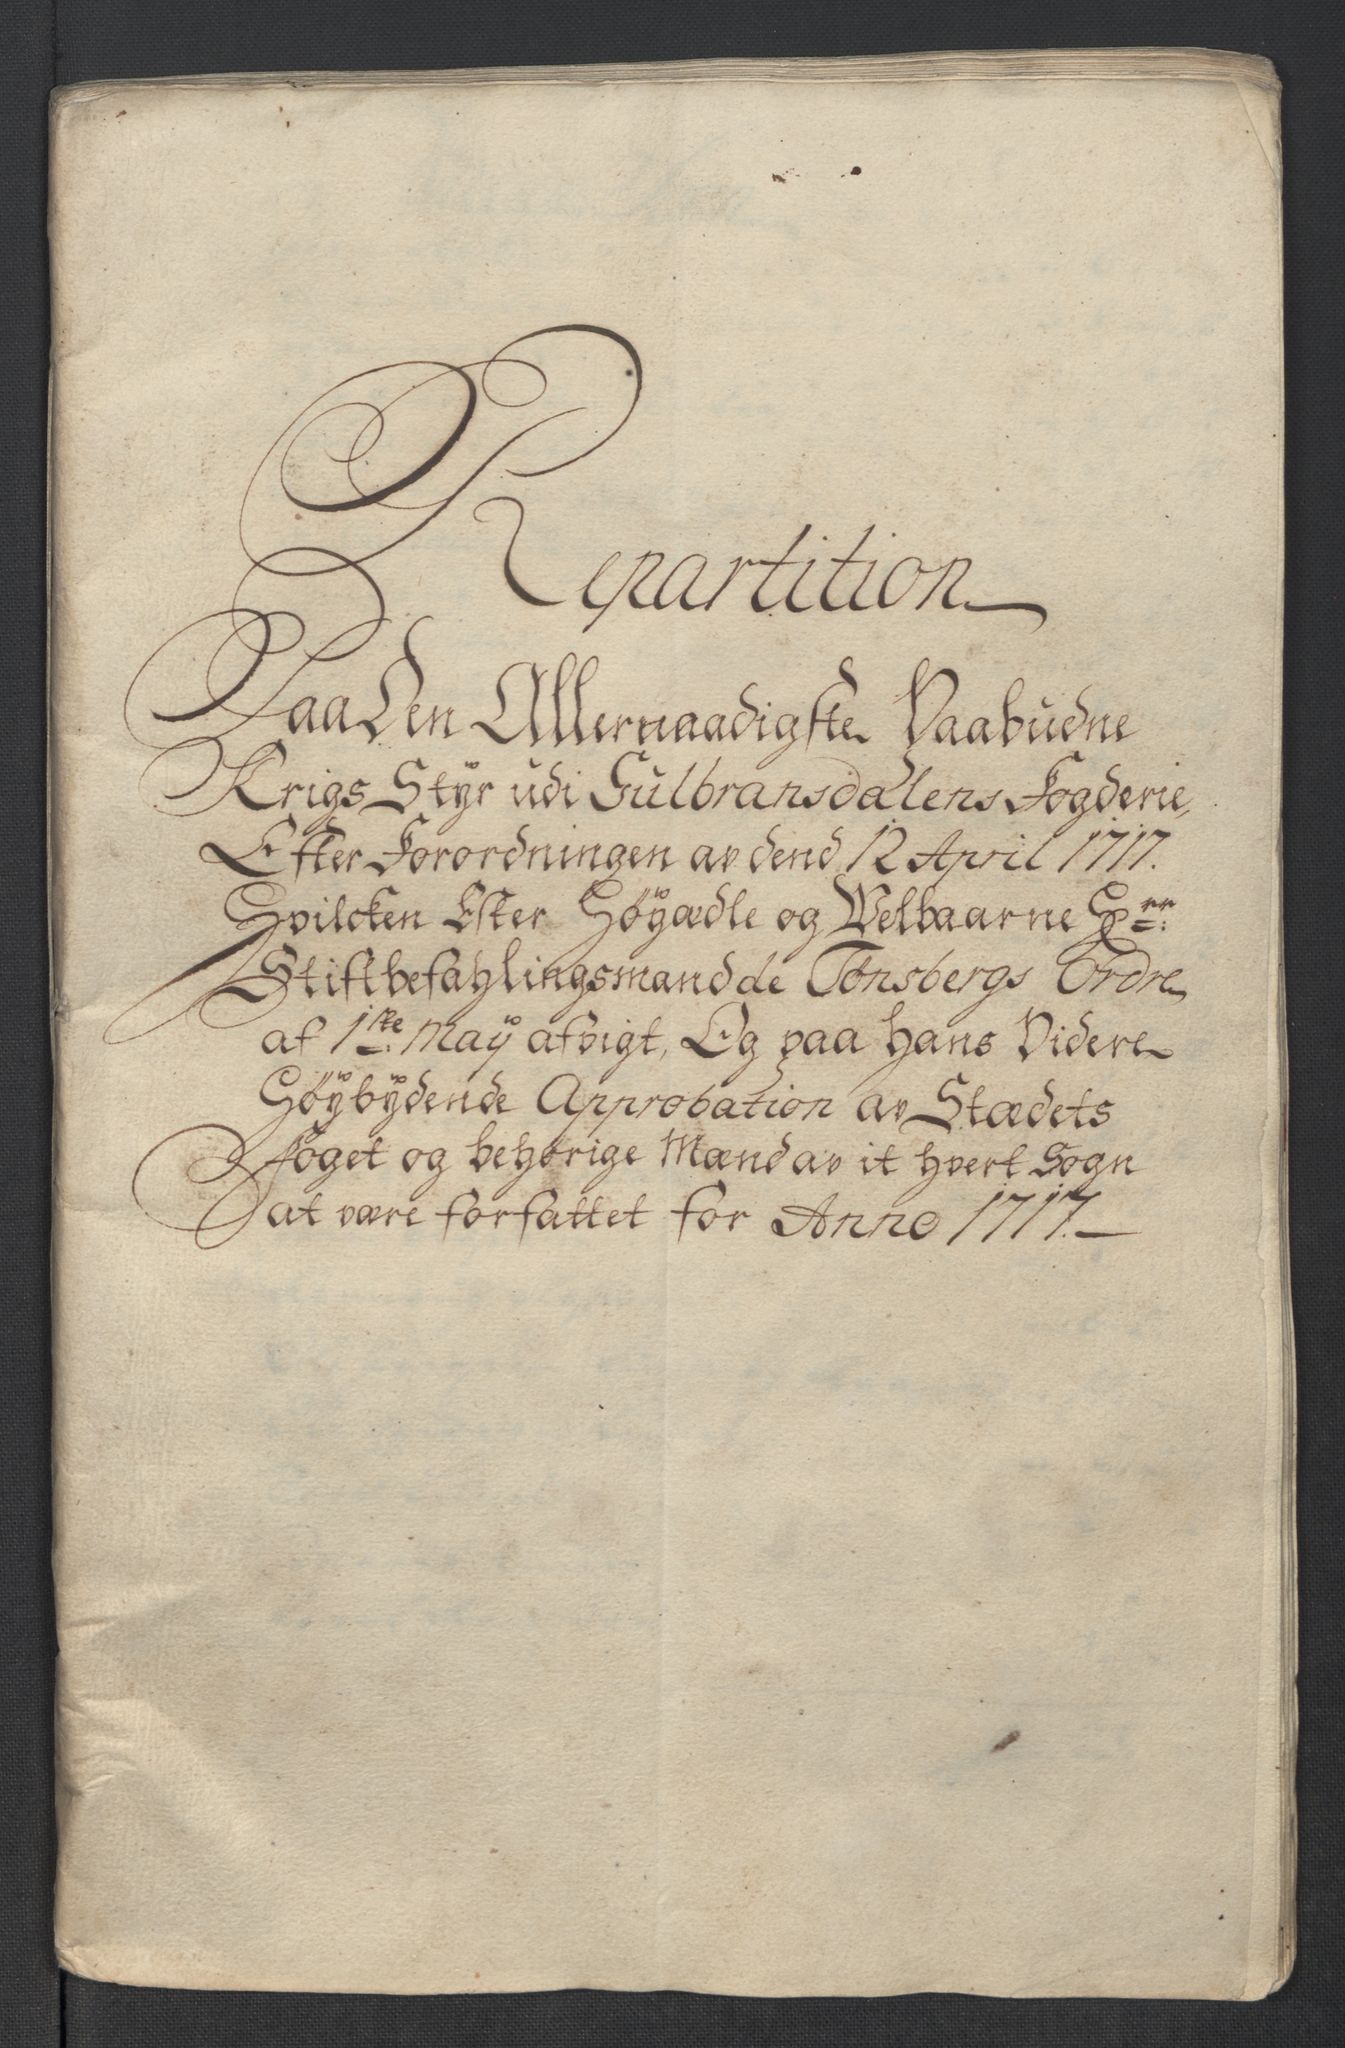 Repartition
Paa Den Allernaadigste Paabudne
Krigs Styr udi Gulbransdalens Fogderie,
Efter Forordningen av dend 12 April 1717.
Hvilcken Efter Høÿædle og Welbaarne Hrr:
Stiftbefahlingsmand de Tonsbergs Ordre
af 1ste: Maÿ afvigt, Og paa hans Videre
Høÿbÿdende Approbation av Stædets
Foget og behørige Mænd av it hvert Sogn
at være forfattet for Anno 1717.